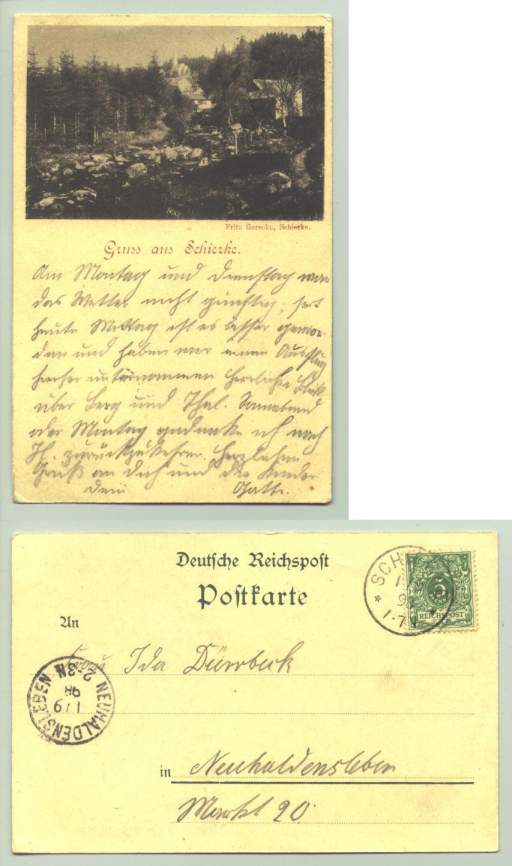 Fritz Gerecke, Schierke.
Gruss aus Schierke.
Am Montag und Dienstag war
das Wetter nicht günstig; seit
heute Mittag ist es besser gewor-
den und haben wir einen Ausflug
hierher unternommen herrliche Blick
über Berg und Thal. Sonnabend
oder Montag gedenke ich nach
H. zurückzukehren. Herzlichen
Gruß an Dich und die Kinder
Dein Gatte.
Deutsche Reichspost
Postkarte
An
Frau Ida Dürrbeck
in Neuhaldensleben
Markt 20.
SCH
REICHSPOST
5
NEUHALDENSLEBEN
2-3N
1 / 9